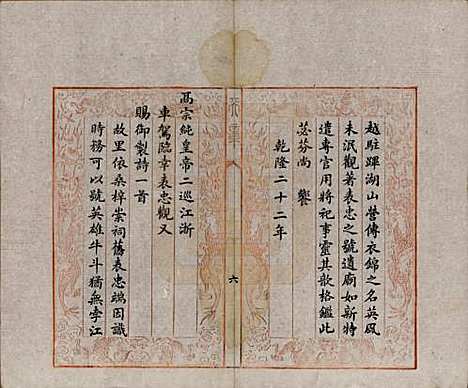 越駐蹕湖山營傳衣錦之名英風
未泯觀著表忠之號遺廟如新特
遣專官用將祀事靈其歆格鑑此
苾芬尚 饗
乾隆二十二年
六
高宗純皇帝二巡江浙
車駕臨幸表忠觀又
賜御製詩一首
故里依桑梓崇祠舊表忠端因識
時務可以號英雄牛斗猶無孛江